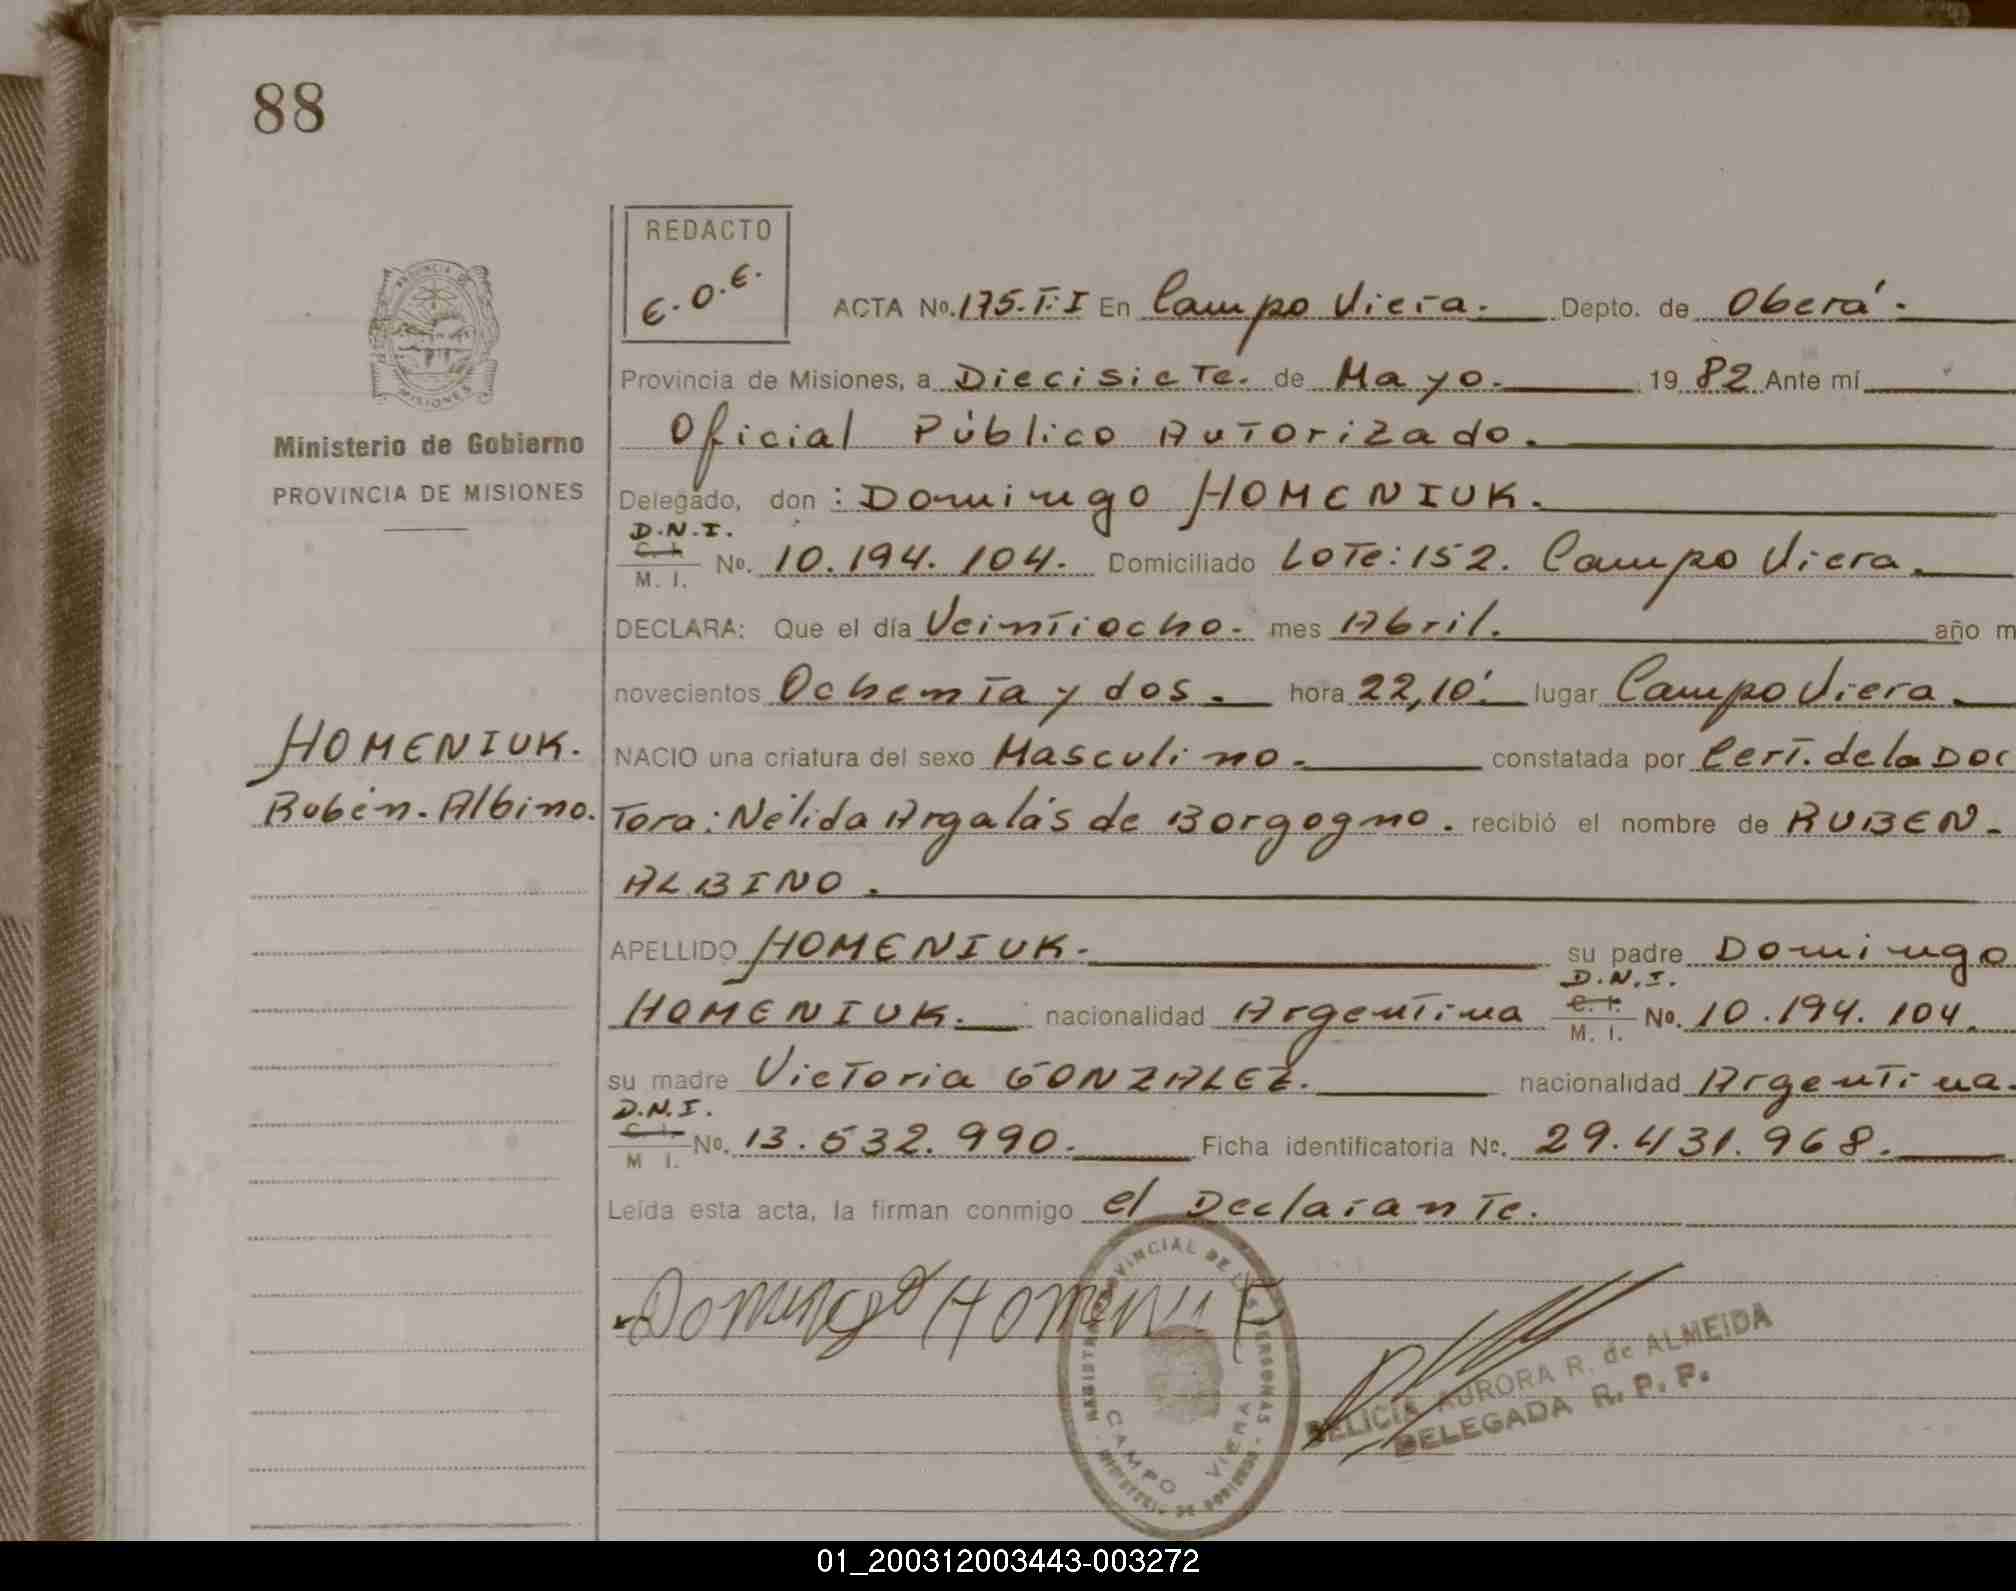 88
REDACTO
E.O.E.
ACTA No. 175.T:I En Campo Viera. Depto. de Oberá.
Provincia de Misiones, a Diecisiete. de Mayo. 19 82 Ante mí
Oficial Público Autorizado.
Ministerio de Gobierno
PROVINCIA DE MISIONES
Delegado, don : Domingo HOMENIUK.
D.N.I.
C. I.
M. I. No. 10.194.104. Domiciliado Lote: 152. Campo Viera.
DECLARA: Que el día Veintiocho. mes Abril. año m
novecientos Ochenta y dos. hora 22,10'. lugar Campo Viera.
HOMENIUK.
Rubén. Albino.
NACIO una criatura del sexo Masculino. constatada por Cert. de la Doc
Tora: Nélida Argalás de Borgogno. recibió el nombre de RUBEN.
ALBINO.
APELLIDO HOMENIUK. su padre Domingo
D.N.I.
HOMENIUK. nacionalidad Argentina C. I. M. I. No. 10.194.104.
su madre Victoria GONZALEZ. nacionalidad Argentina.
D.N.I.
C. I.
M I. No. 13.532.990. Ficha identificatoria No. 29.431.968.
Leída esta acta, la firman conmigo el Declarante.
Domingo Homeniuk
REGISTRO PROVINCIAL DE LAS PERSONAS
CAMPO VIERA
MINISTERIO DE GOBIERNO
FELICIA AURORA R. de ALMEIDA
DELEGADA R. P. P.
01_200312003443-003272